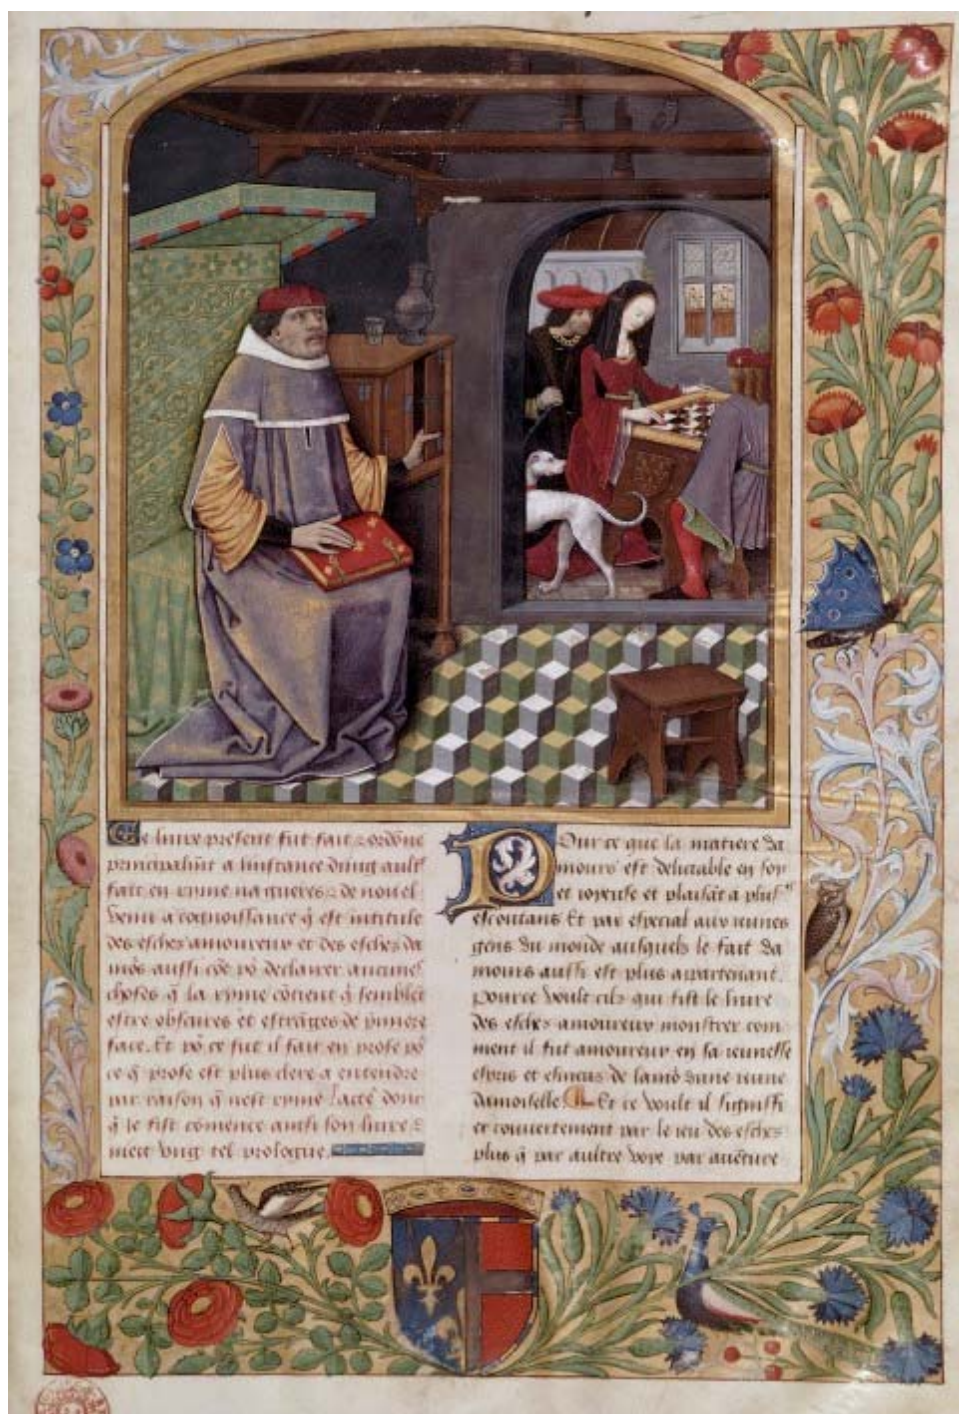 Ce liure present fut fait & ordōne
principalmt a linstance dung aultr
fait en ryme nagueres & de nouel
venu a congnoissance q̄ est intitule
des esches amoureux et des esches da
mōs aussi cōe po' declairer aucunes
choses q̄ la ryme cōtient q̄ semblēt
estre obscures et estrāges de pmiere
face. Et po' ce fut il fait en prose po'
ce q̄ prose est plus clere a entendre
par raison q̄ nest ryme Lacte' donc
q̄ le fist cōmence ainsi son liure &
mect vng tel prologue.
Pour ce que la matiere da
mours est delictable en soy
et ioyeuse et plaisāt a pluss
escoutans Et par especial aux ieunes
gens du monde ausquels le fait da
mours aussi est plus appartenant.
pource voult cilz qui fist le liure
des esches amoureux monstrer com
ment il fut amoureux en sa ieunesse
espris et esmeus de lamo' dune ieune
damoiselle Et ce voult il signiffi
er couuertement par le ieu des esches
plus q̄ par aultre voye par auēture